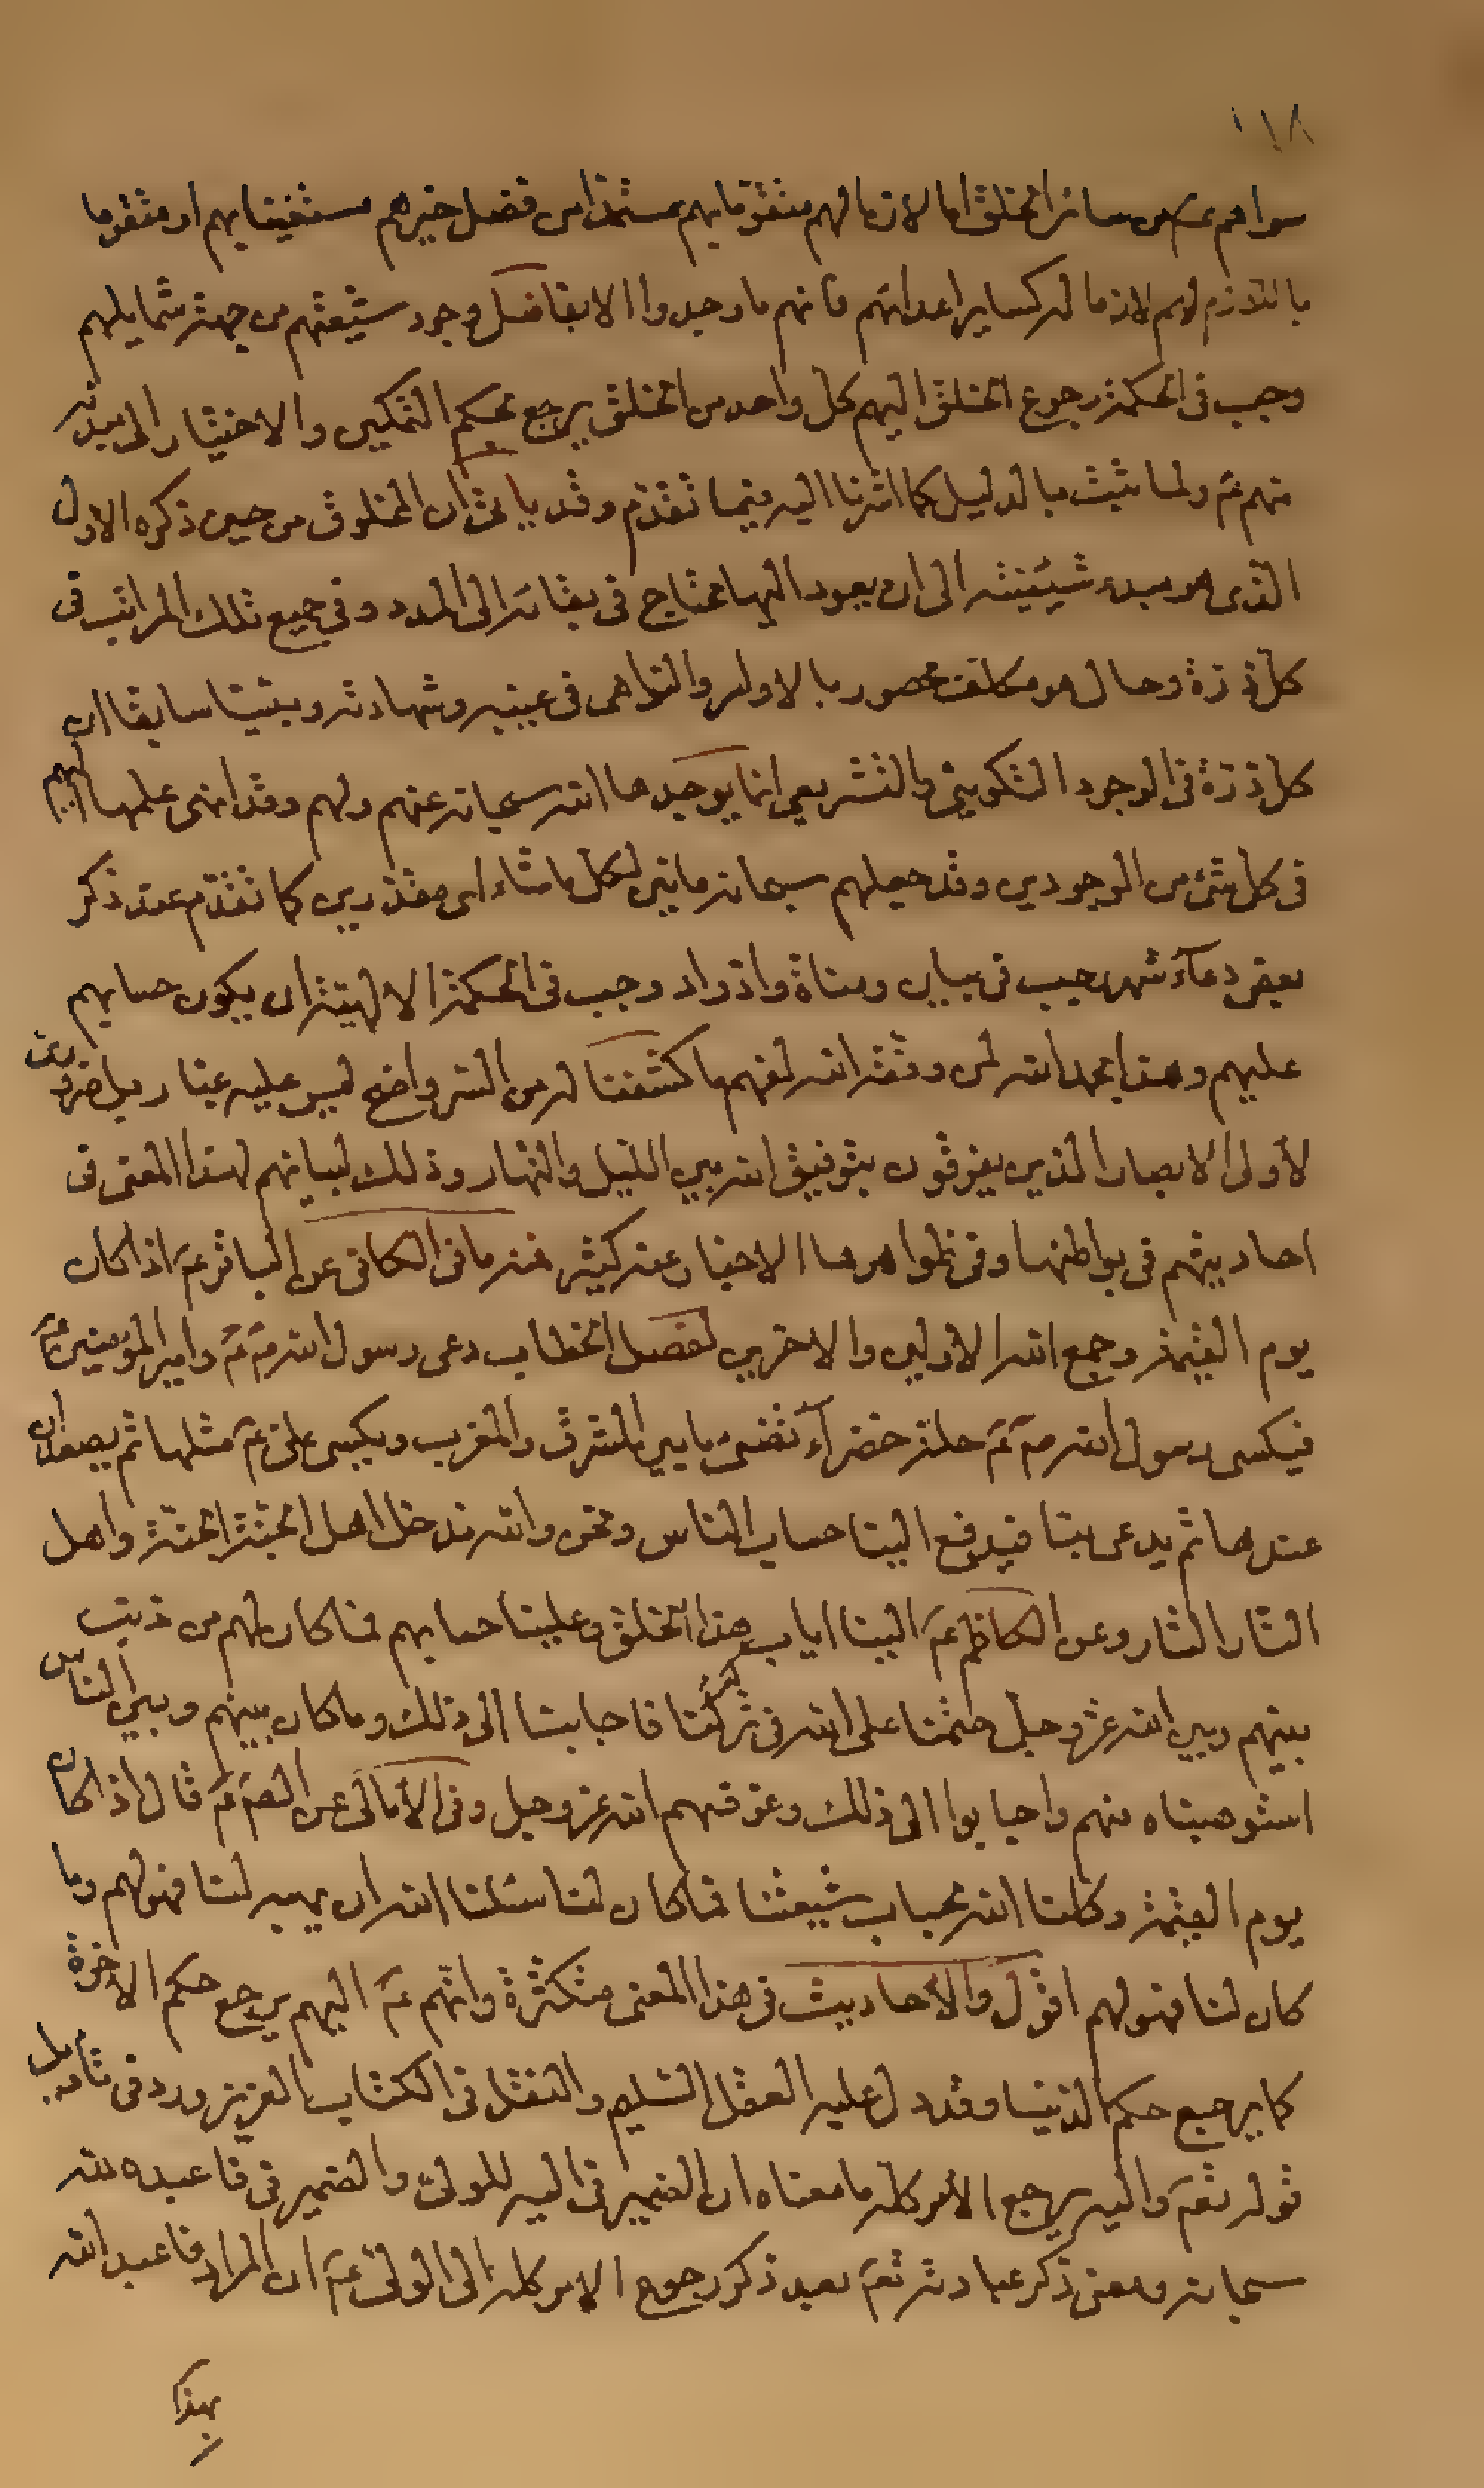 ١١٨
سواهم عـ من سائر الخلق اما لازما لهم متقوّما بهم مستمدّا من فضل خيرهم مستغيثا بهم او متقوما
بالتلازم لهم لازما له كساير اعدائهم فانهم ما وجدوا الا بفاضل وجود شيعتهم من جهة شمايلهم
وجب فى الحكمة رجوع الخلق اليهم كل واحد من الخلق يرجع بحكم التمكين والاختيار الى مبدئه
منهم عـ ولما ثبت بالدليل كما اشرنا اليه فيما تقدّم وقد ياتى ان المخلوق من حين ذكره الاول
الذى هو مبدء شيئيته الى ان يعود اليها محتاج فى بقائه الى المدد وفى جميع تلك المراتب فى
كل ذرة وحال هو مكلف محصور بالاوامر والنواهى فى غيبه وشهادته وبيّنا سابقا ان
كل ذرّة فى الوجود التكوينى والتشريعى انما يوجدها الله سبحانه عنهم ولهم وقد انهى علمها اليهم
فى كل شئ من الوجودين وقد جعلهم سبحانه مانين لكل ما شاء اى مقدّرين كما تقدّم عند ذكر
بعض دعآء شهر رجب فى بيان ومناة واذواد وجب فى الحكمة الالهيّة ان يكون حسابهم
عليهم وهذا بحمد الله لمن وفقه الله لفهم ما كشفنا له من السّر واضح ليس عليه غبار بل ضرورى
لأولى الابصار الذين يفرقون بتوفيق الله بين الليل والنّهار وذلك لبيانهم لهذا المعنى فى
احاديثهم فى بواطنها وفى ظواهرها الاخبار عنه كثير فمنه ما فى الكافى عن الباقر عـ اذا كان
يوم القيٰمة وجمع الله الاوّلين والاخرين لفصل الخطاب دعى رسول الله صـ عـ وامير المؤمنين عـ
فيكسى رسول الله صـ عـ حلّة خضرآء تضئ ما بين المشرق والمغرب ويكسى علىّ عـ مثلها ثم يصعدان
عندها ثم يدعى بنا فيدفع الينا حساب الناس ونحن والله ندخل اهل الجنّة الجنّة واهل
النّار النّار وعن الكاظم عـ الينا اياب هذا الخلق وعلينا حسابهم فما كان لهم من ذنب
بينهم وبين الله عزّ وجل حتمنا على الله فى تركه لنا فاجابنا الى ذلك وما كان بينهم وبين الناس
استوهبناه منهم واجابوا الى ذلك وعوّضهم الله عز وجل وفى الأمالى عن الصّم عـ قال اذا كان
يوم القيٰمة وكلنا الله بحساب شيعتنا فما كان لله سئلنا الله ان يهبه لنا فهو لهم وما
كان لنا فهو لهم اقول والأحاديث فى هذا المعنى متكثّرة وانّهم عـ اليهم يرجع حكم الاخرة
كما يرجع حكم الدّنيا وقد دل عليه العقل السّليم والنقل فى الكتاب العزيز ورد فى تأويل
قوله تعـ واليه يرجع الأمر كلّه ما معناه ان الضمير فى اليه للولىّ والضمير فى فاعبده لله
سبحانه ومعنى ذكر عبادته تعـ بعد ذكر رجوع الامر كله الى الولىّ عـ ان المراد فاعبد الله
بهذا